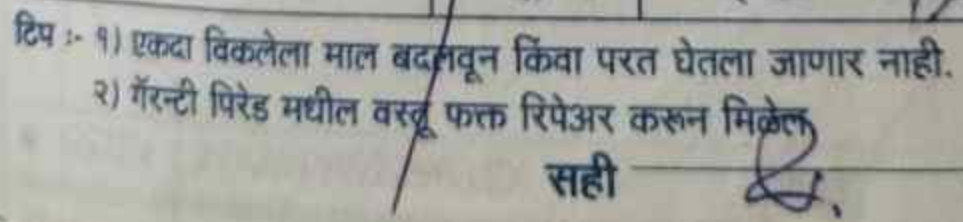 टिप :- १) एकदा विकलेला माल बदलवून किंवा परत घेतला जाणार नाही.
२) गॅरन्टी पिरेड मधील वस्तू फक्त रिपेअर करून मिळेल
सही